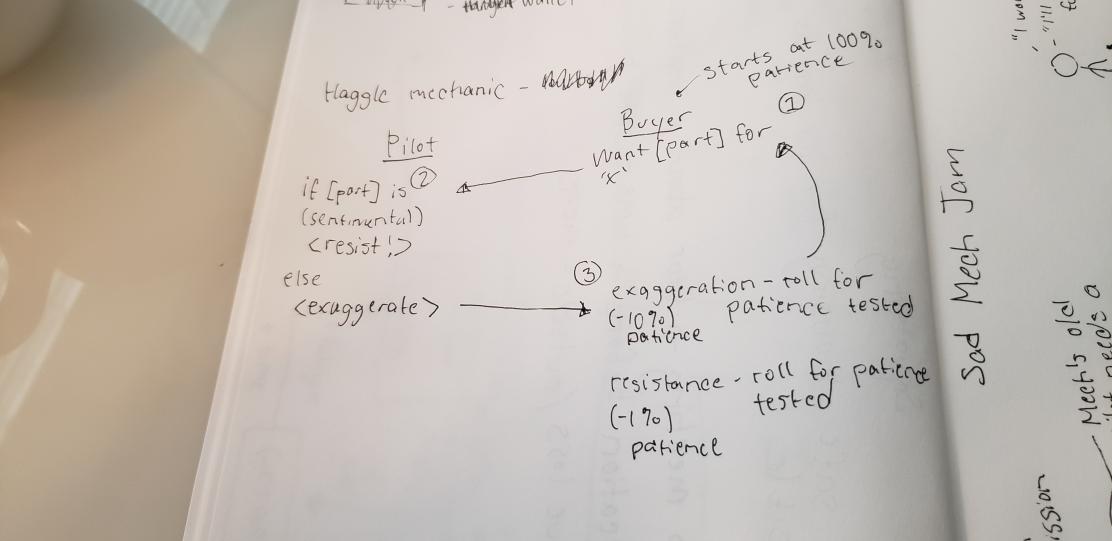 Haggle mechanic -
starts at 100%
patience
Pilot
Buyer
①
want [part] for
'x'
if [part] is ②
(sentimental)
<resist!>
else
<exaggerate>
③ exaggeration - roll for
(-10%) patience tested
patience
resistance - roll for patience
(-1%) tested
patience
Sad Mech Jam
Mech's old
needs a